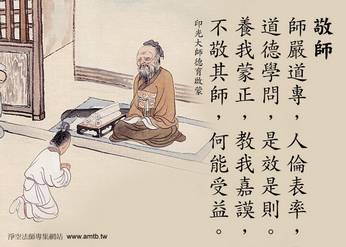 敬師
師嚴道專，人倫表率，
道德學問，是效是則。
養我蒙正，教我嘉謨，
不敬其師，何能受益。
印光大師德育啟蒙
淨空法師專集網站 www.amtb.tw